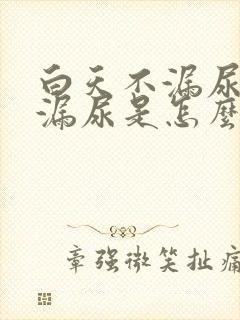 白天不漏尿
漏尿是怎麼
章強微笑扯痛